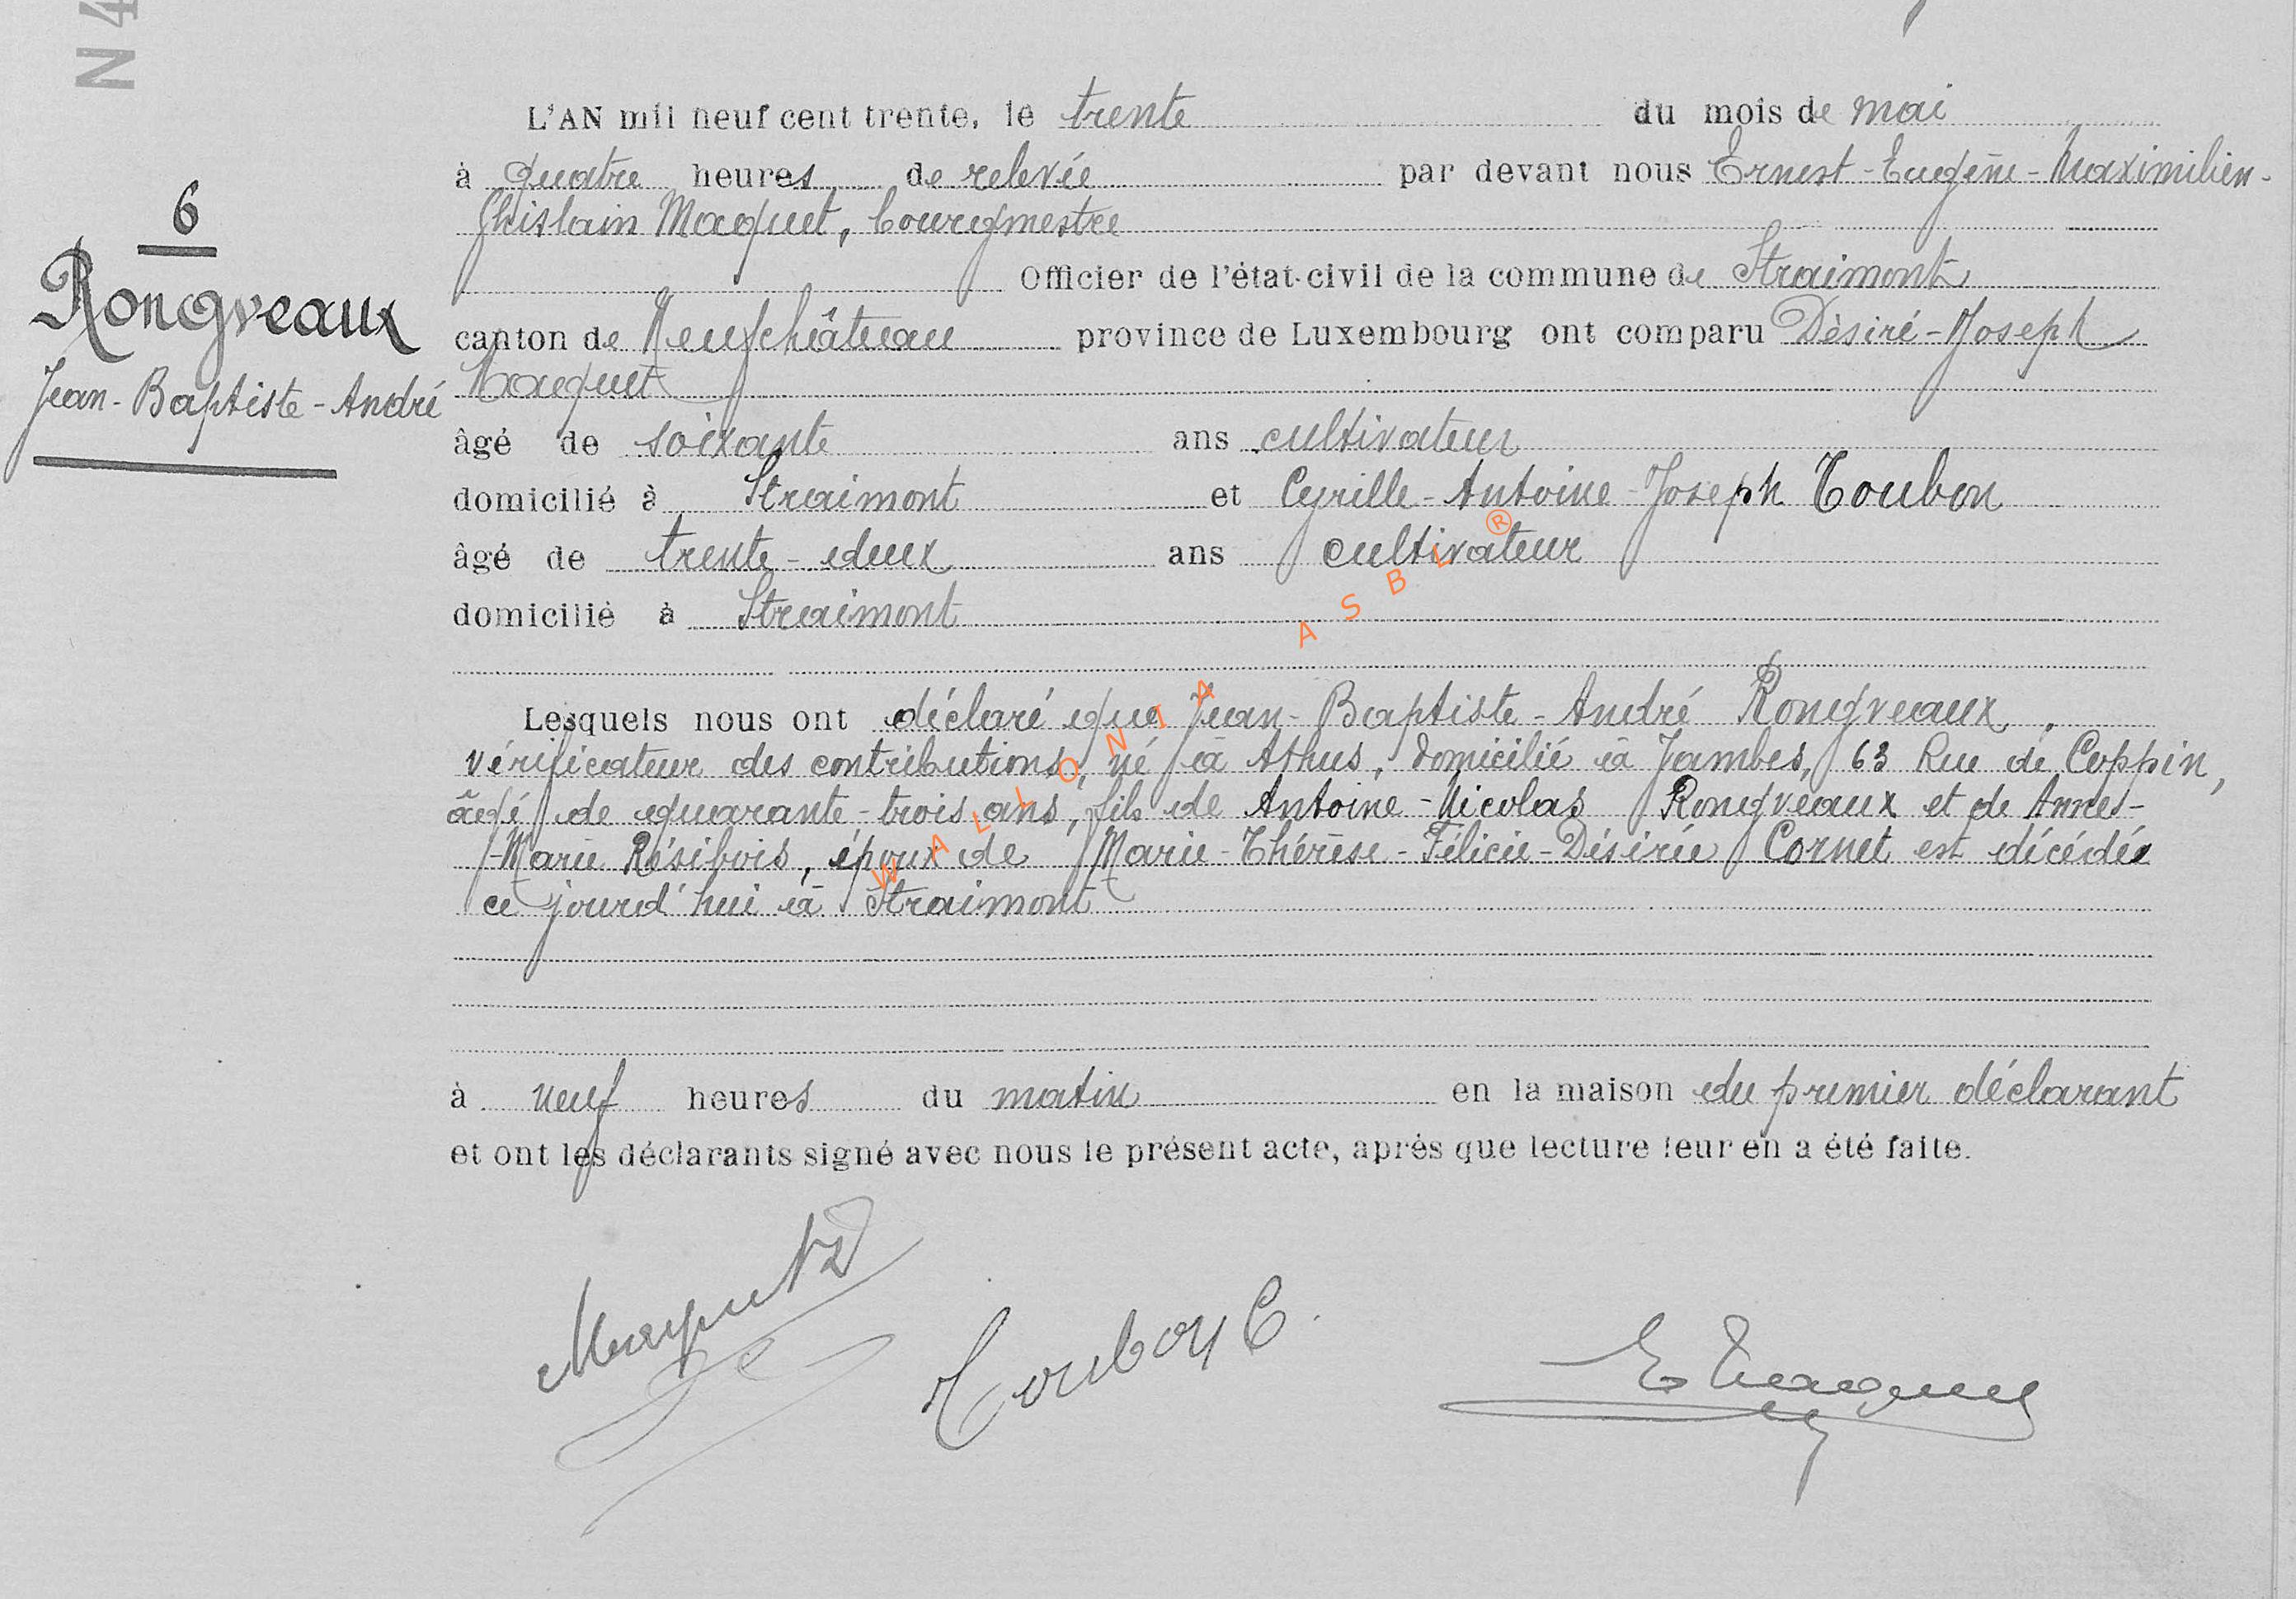 N 4
6
Rongveaux
Jean-Baptiste-André
L'AN mil neuf cent trente, le trente du mois de mai
à quatre heures de relevée par devant nous Ernest-Eugène-Maximilien-
Ghislain Maquet, bourgmestre
Officier de l'état-civil de la commune de Straimont
canton de Neufchâteau province de Luxembourg ont comparu Désiré-Joseph
Maquet
âgé de soixante ans cultivateur
domicilié à Straimont et Cyrille-Antoine-Joseph Toubon
âgé de trente-deux ans cultivateur
domicilié à Straimont
Lesquels nous ont déclaré que Jean-Baptiste-André Rongveaux,
vérificateur des contributions, né à Athus, domicilié à Jambes, 63 Rue de Coppin,
âgé de quarante-trois ans, fils de Antoine-Nicolas Rongveaux et de Annes-
-Marie Résibois, époux de Marie-Thérèse-Félicie-Désirée Cornet est décédé
ce jourd'hui à Straimont
à neuf heures du matin en la maison du premier déclarant
et ont les déclarants signé avec nous le présent acte, après que lecture leur en a été faite.
Maquet D
Toubon C.
E Maquet
WALLONIA ASBL ®